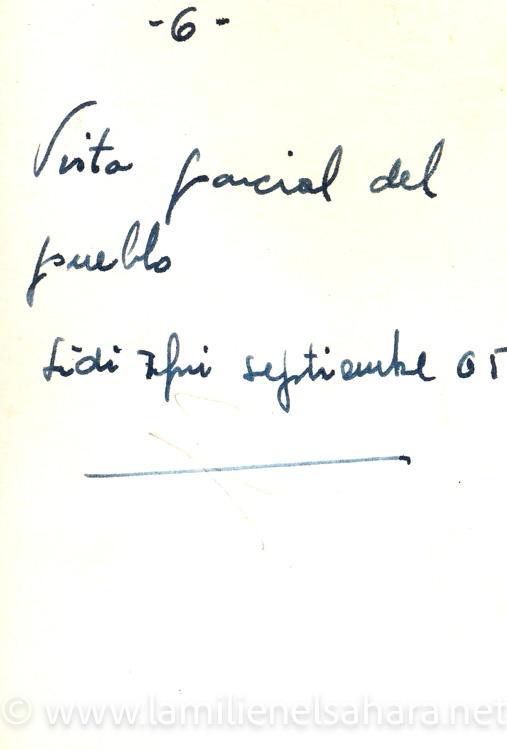 -6-
Vista parcial del
pueblo
Sidi Ifni septiembre 65
© www.lamilienelsahara.net